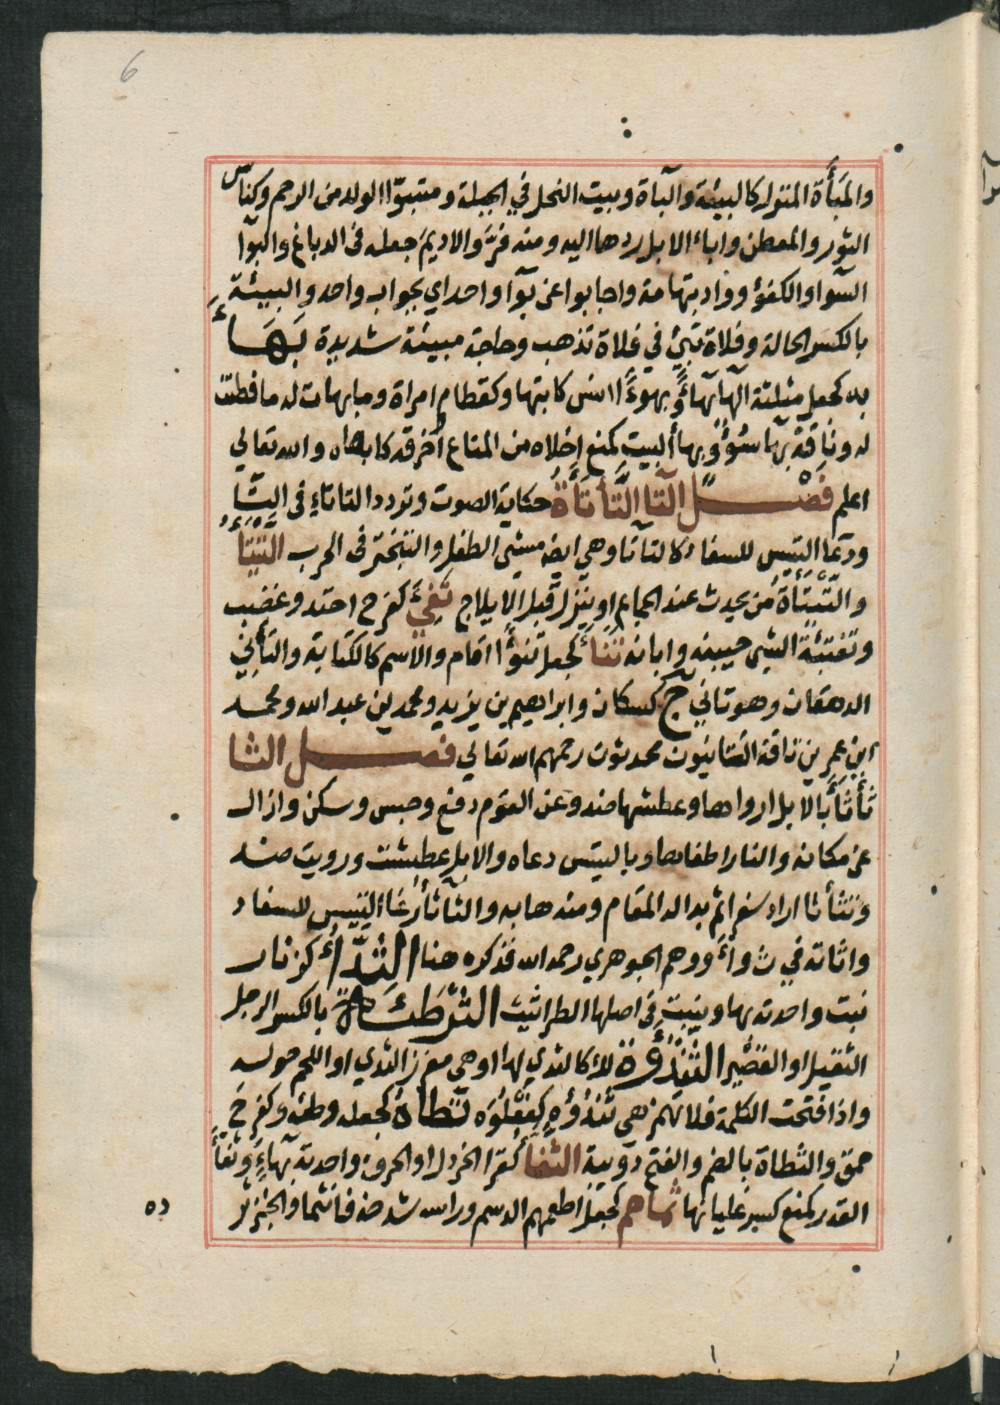 6
والمَبَأَة المنزل كالبيئة والبآة وبيت النحل في الجبلة ومتبوّا الولد من الرحم وكناس
الثور والمعطن واباء الابل ردها اليه ومنه فرَّ والاديم جعله فى الدباغ والبوآ
السوآ والكفؤ وواد بتهامة واجابوا عن بوآ واحد اي بجواب واحد والبيئة
بالكسر الحالة وفلاة تبئ في فلاة تذهب وحاجة مبيئة شديدة بَهَأَ
به كجعل مثلثة الهآ بهأ وبهوءًا انس كابتها وكقطام امراة ومابهات له ما فطنت
له وناقة بهآ بسؤ وبهأ البيت كمنع اخلاه من المتاع اخرقه كابهاه والله تعالى
اعلم فصل التا التأتأة حكاية الصوت وتردد التاتاء فى التا
ودعا التيس للسفاد كالتأتا وهي ايضا مشى الطفل والتبختر فى الحرب التيتأ
والتيتأة من يحدث عند الجماع او ينزل قبل الايلاج تفئ كفرح احتد وغضب
وتفئة الشى حينه وابانه تنأ كجعل تنوًا اقام والاسم كالكتابة والتأني
الدهقان وهو تانئ ج كسكان وابراهيم بن يزيد ومحمد بن عبد الله ومحمد
ابن عمر بن تاقة التنائيون محدثون رحمهم الله تعالي فصل الثا
ثأثأ بالابل ارواها وعطشها ضد وعن القوم دفع وحبس وسكن وازال
عن مكانه والنار اطفاها وبالتيس دعاه والابل عطشت ورويت ضد
وتثأثا اراد سفرا ثم بدا له المقام ومنه هابه والثأثأ دعا التيس للسفاد
واثاته في ث وأ ووهم الجوهري رحمه الله فذكره هنا الثدّأ كزنار
نبت واحدته بها وينبت فى اصلها الطراثيث الثرطئة بالكسر الرجل
الثقيل او القصير الثندؤة لك كالثدي لها او هي مغرز الثدي او اللحم حوله
واذا فتحت الكلمة فلا تهمز هى ثندُوة كفعلوة ثطأه كجعله وطئه وكفرح
حمق والثطاة بالضم والفتح دويبة الثفا كقرا الخردل او الحرف واحدته بهاء وثفأ
القدر كمنع كسر غليانها ثماهم كجعل اطعمهم الدسم وراسه شدخه فانثما والخبز ثر
ده